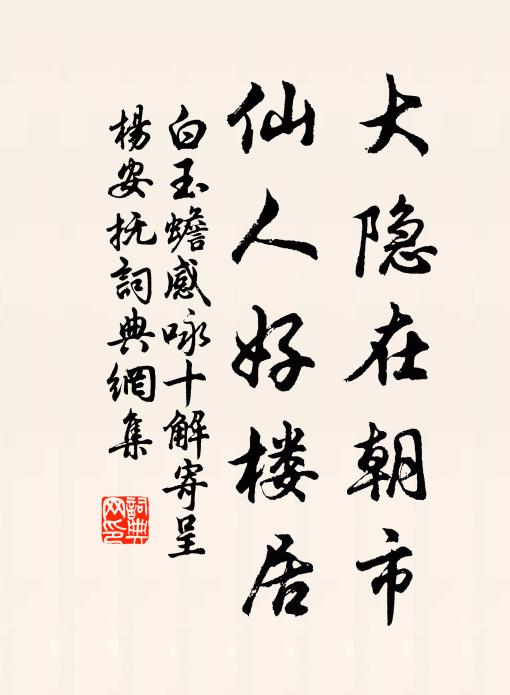 大隐在朝市
仙人好楼居
白玉蟾感咏十解寄呈
楊安抚詞典網集
詞典
网印